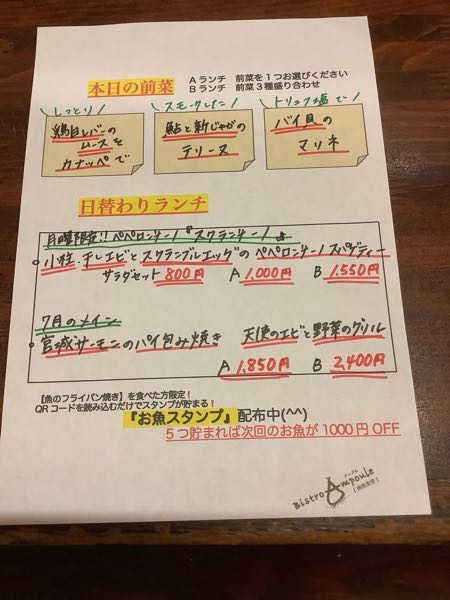 本日の前菜
Aランチ 前菜を1つお選びください
Bランチ 前菜3種盛り合わせ
\しっとり/
鶏白レバーの
ムースを
カナッペで
\スモークした/
鮎と新じゃがの
テリーヌ
\トリュフ塩で/
バイ貝の
マリネ
日替わりランチ
月曜限定!! ペペロンチーノ『スクランチーノ』
・小柱、干しエビとスクランブルエッグのペペロンチーノスパゲティー
サラダセット 800円 A 1,000円 B 1,550円
7月のメイン
宮城サーモンのパイ包み焼き 天使のエビと野菜のグリル
A 1,850円 B 2,400円
【魚のフライパン焼き】を食べた方限定!
QRコードを読み込むだけでスタンプが貯まる!
『お魚スタンプ』配布中(^^)
5つ貯まれば次回のお魚が1000円OFF
アンプル
Bistro Ampoule